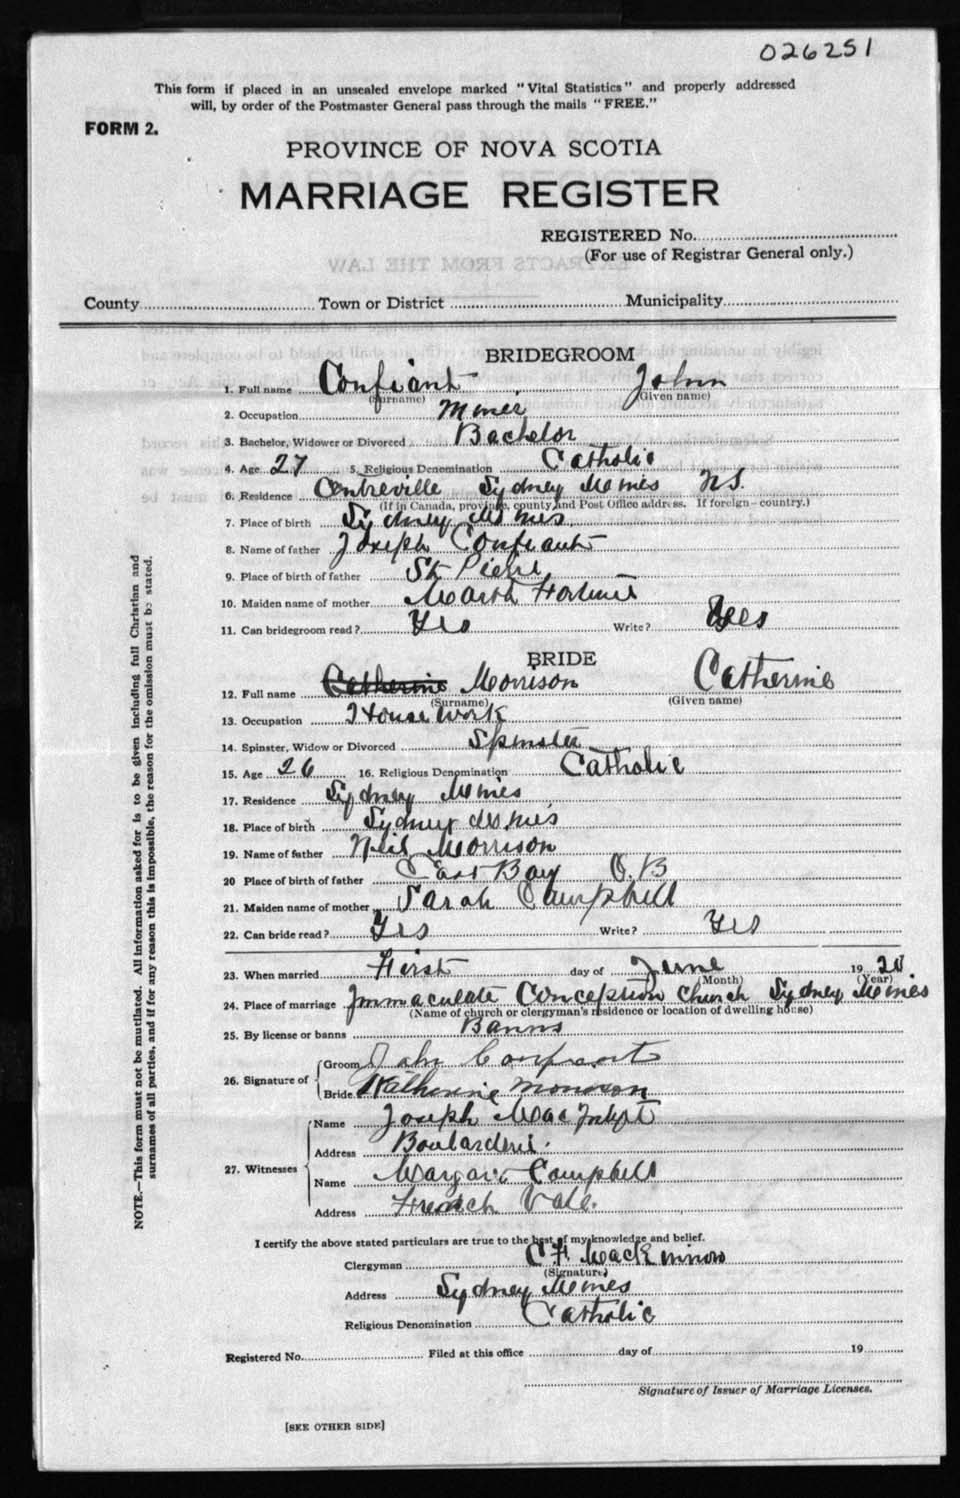 026251
This form if placed in an unsealed envelope marked "Vital Statistics" and properly addressed
will, by order of the Postmaster General pass through the mails "FREE."
FORM 2.
PROVINCE OF NOVA SCOTIA
MARRIAGE REGISTER
REGISTERED No.
(For use of Registrar General only.)
EXTRACTS FROM THE LAW
County Town or District Municipality
BRIDEGROOM
1. Full name Confiant John
(Surname) (Given name)
2. Occupation Miner
3. Bachelor, Widower or Divorced Bachelor
4. Age 27 5. Religious Denomination Catholic
6. Residence Centreville Sydney Mines N.S.
(If in Canada, province, county and Post Office address. If foreign—country.)
7. Place of birth Sydney Mines
8. Name of father Joseph Confiant
9. Place of birth of father St Pierre
10. Maiden name of mother
11. Can bridegroom read? Yes Write? Yes
BRIDE
12. Full name Catherine Morrison Catherine
(Surname) (Given name)
13. Occupation House Work
14. Spinster, Widow or Divorced Spinster
15. Age 26 16. Religious Denomination Catholic
17. Residence Sydney Mines
18. Place of birth Sydney Mines
19. Name of father Neil Morrison
20 Place of birth of father East Bay C.B
21. Maiden name of mother Sarah Campbell
22. Can bride read? Yes Write? Yes
23. When married First day of June 1920
(Month) (Year)
24. Place of marriage Immaculate Conception Church Sydney Mines
(Name of church or clergyman's residence or location of dwelling house)
25. By license or banns Banns
26. Signature of
Groom John Confiant
Bride Katherine Morrison
27. Witnesses
Name Joseph Mac
Address Boularderie.
Name Margaret Campbell
Address French Vale.
I certify the above stated particulars are true to the best of my knowledge and belief.
Clergyman C F MacKinnon
(Signature)
Address Sydney Mines
Religious Denomination Catholic
Registered No. Filed at this office day of 19
Signature of Issuer of Marriage Licenses.
[SEE OTHER SIDE]
NOTE.—This form must not be mutilated. All information asked for is to be given including full Christian and
surnames of all parties, and if for any reason this is impossible, the reason for the omission must be stated.